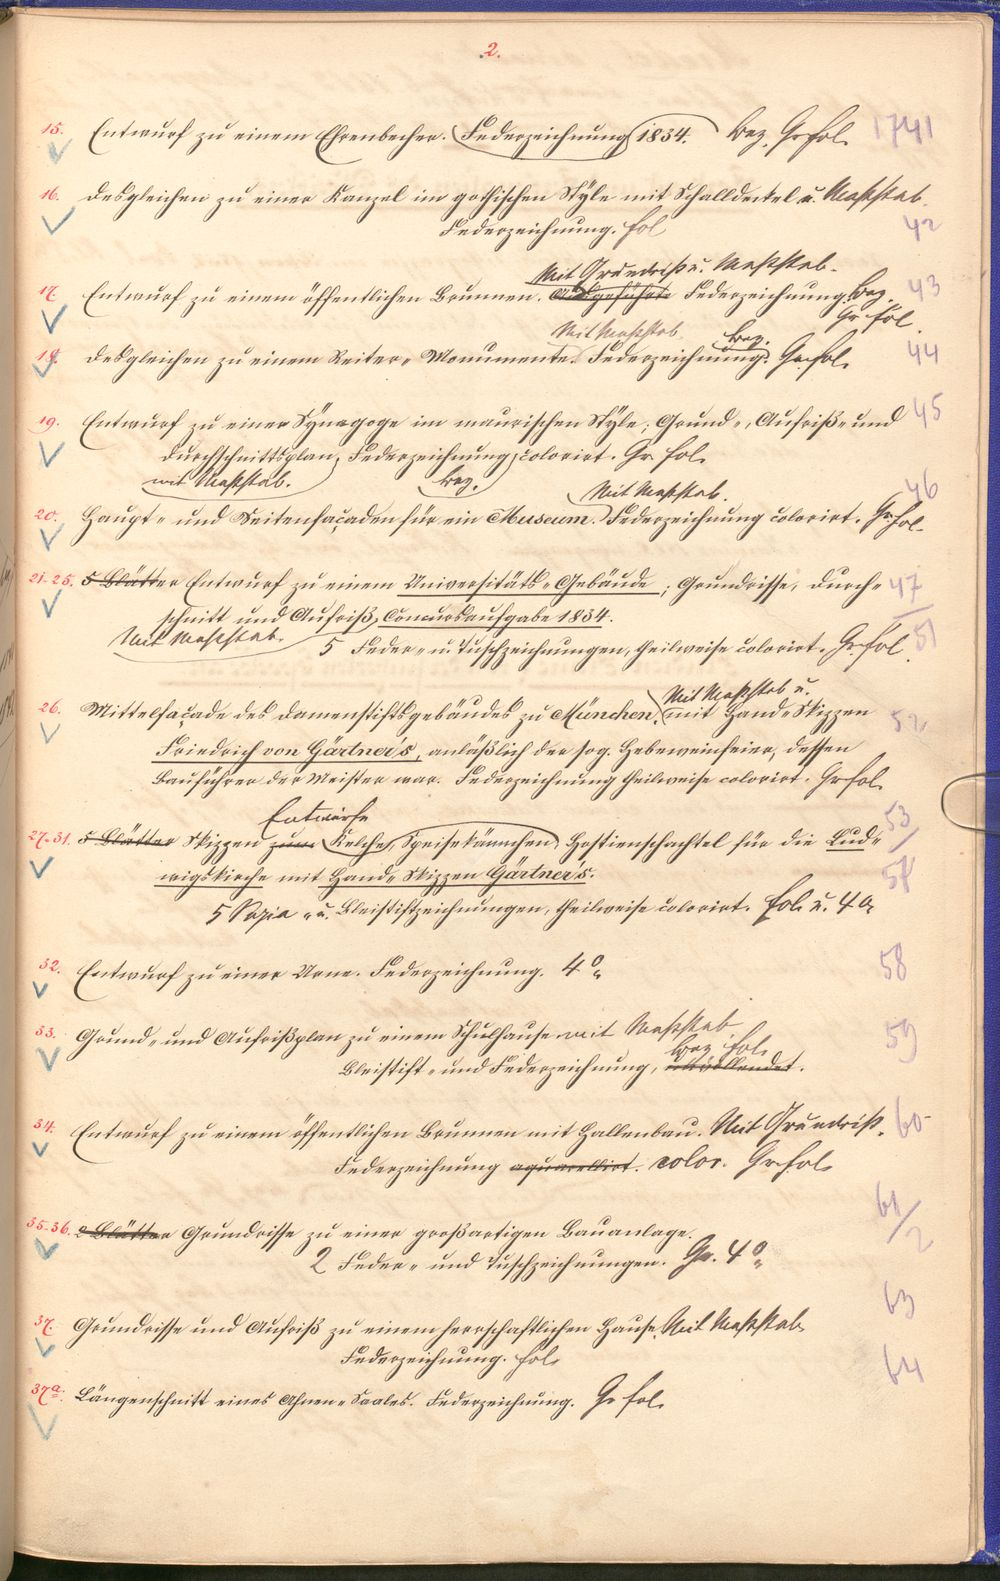 2.
15. Entwurf zu einem Ehrenbecher. Federzeichnung 1834. Bez. Gr. fol. 1741
16. Desgleichen zu einer Kanzel im gothischen Style mit Schalldeckel u. Massstab.
Federzeichnung. fol 42
Mit Grundriss u. Massstab.
17. Entwurf zu einem öffentlichen Brunnen. Ausgeführte Federzeichnung. Bez. 43
Gr fol.
Mit Massstab. Bez.
18. Desgleichen zu einem Reiter-Monumente. Federzeichnung. Gr. fol. 44
19. Entwurf zu einer Synagoge im maurischen Style; Grund-, Aufriß- und 45
Durchschnittsplan, Federzeichnung, colorirt. Gr fol.
mit Massstab. Bez. Mit Massstab. 46
20. Haupt- und Seitenfaçaden für ein Museum. Federzeichnung colorirt. Gr. fol.
21-25. 5 Blätter Entwurf zu einem Universitäts-Gebäude; Grundrisse, Durch- 47
schnitt und Aufriß, Concursaufgabe 1834.
Mit Massstab. 5 Feder- u. Tuschzeichnungen, theilweise colorirt. Gr. fol. 51
Mit Massstab u.
26. Mittelfaçade des Damenstiftsgebäudes zu München, mit Hand-Skizzen 52
Friedrich von Gärtner's, anläßlich der sog. Hebeweinfeier, dessen
Bauführer der Meister war. Federzeichnung theilweise colorirt. Gr fol.
Entwürfe
27-31. 5 Blätter Skizzen zum Kelche, Speisekännchen, Hostienschachtel für die Lud- 53
wigskirche mit Hand-Skizzen Gärtner's. 57
5 Sepia- u. Bleistiftzeichnungen, theilweise colorirt. fol. u. 4o
32. Entwurf zu einer Urne. Federzeichnung. 4o 58
33. Grund- und Aufrißplan zu einem Schulhause mit Massstab. 59
Bez. fol.
Bleistift- und Federzeichnung, unvollendet.
34. Entwurf zu einem öffentlichen Brunnen mit Hallenbau. Mit Grundriss. 60
Federzeichnung aquarellirt. color. Gr. fol.
35.36. 2 Blätter Grundrisse zu einer großartigen Bauanlage. 61/2
2 Feder- und Tuschzeichnungen. Gr. 4o
37. Grundrisse und Aufriß zu einem herrschaftlichen Hause. Mit Massstab. 63
Federzeichnung. fol. 64
37a. Längenschnitt eines Ahnen-Saales. Federzeichnung. Gr fol.